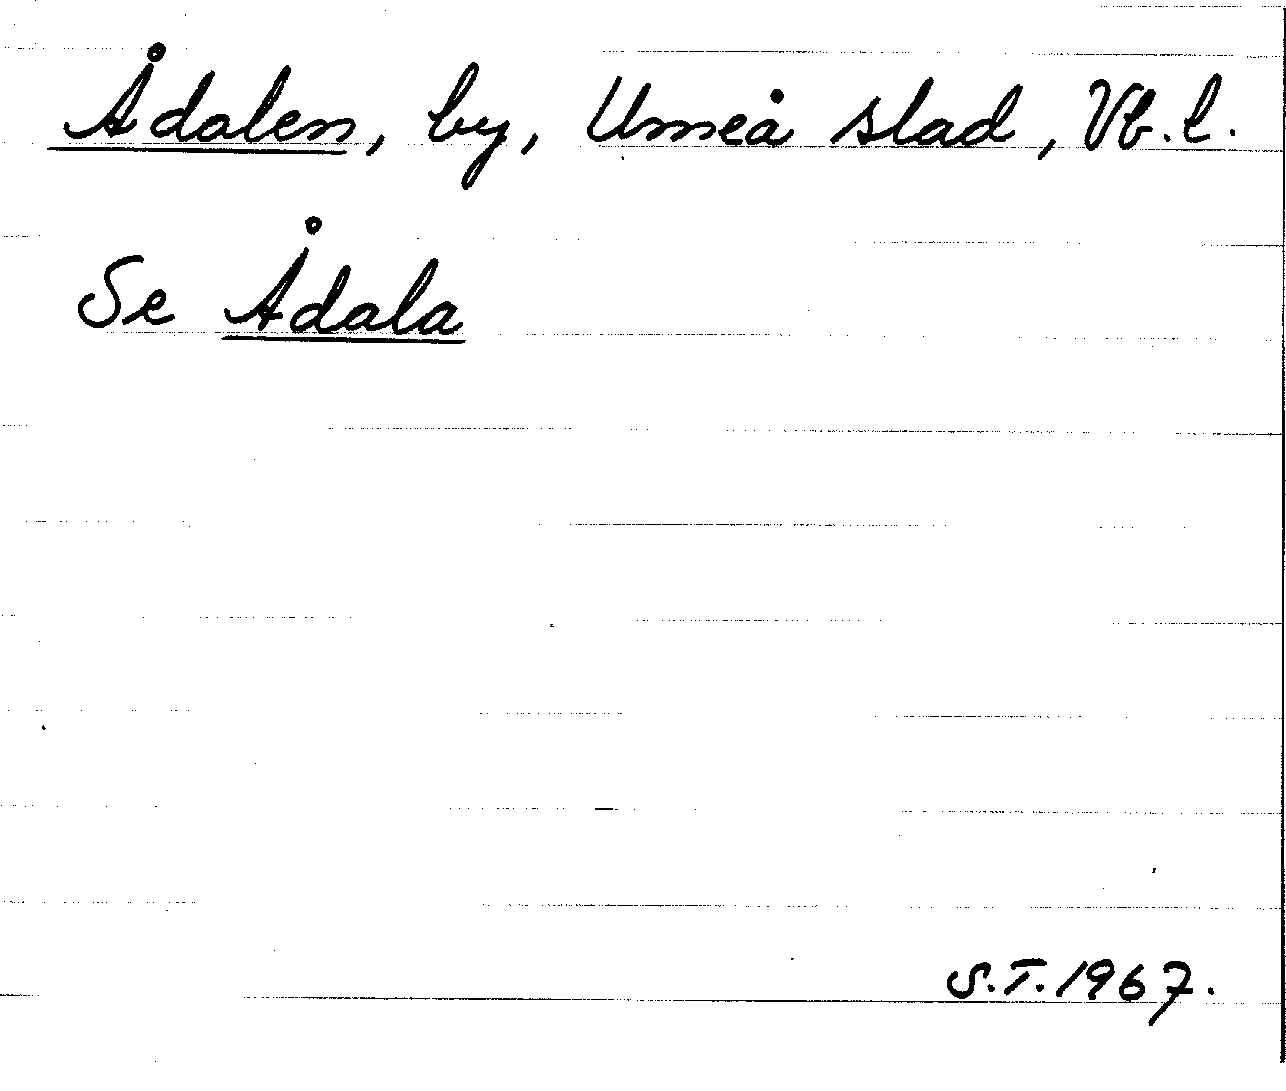 Ådalen, by, Umeå stad, Vb. l.
Se Ådala
S.T. 1967.